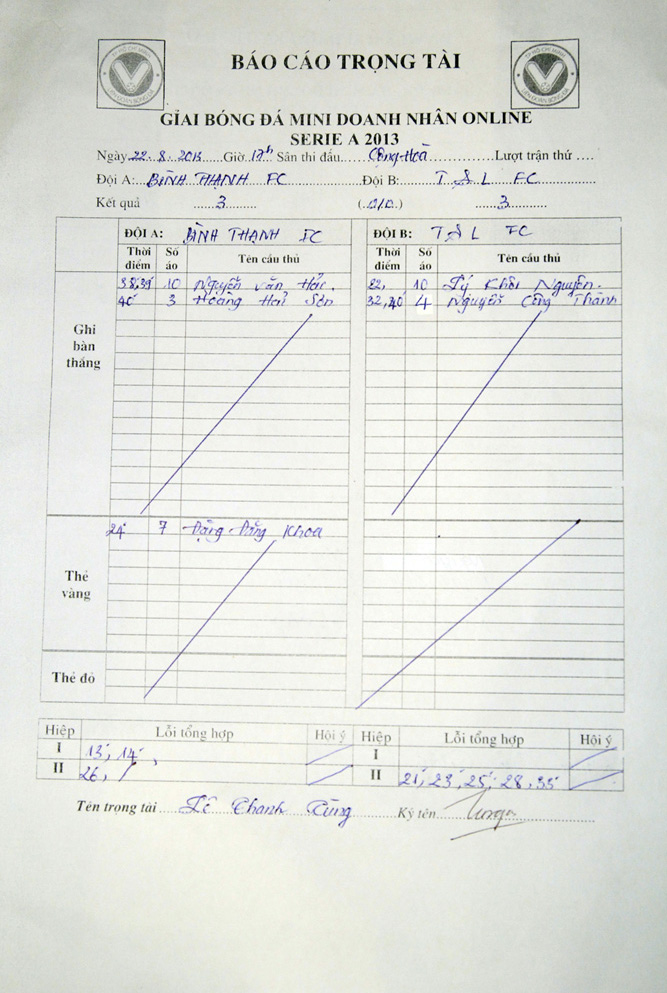 BÁO CÁO TRỌNG TÀI
GIẢI BÓNG ĐÁ MINI DOANH NHÂN ONLINE
SERIE A 2013
Ngày 22.8.2013 Giờ 17h Sân thi đấu Cộng Hoà Lượt trận thứ ....
Đội A: BÌNH THẠNH FC Đội B: T&L FC
Kết quả 3 (.0/0.) 3
ĐỘI A: BÌNH THẠNH FC ĐỘI B: T&L FC
Thời điểm Số áo Tên cầu thủ Thời điểm Số áo Tên cầu thủ
Ghi bàn thắng
38,39 10 Nguyễn Văn Hải 22, 10 Lý Khôi Nguyên.
40' 3 Hoàng Hải Sơn 32,40 4 Nguyễn Công Thành
Thẻ vàng
24' 7 Đặng Đăng Khoa
Thẻ đỏ
Hiệp Lỗi tổng hợp Hội ý Hiệp Lỗi tổng hợp Hội ý
I 13', 14', I
II 26, II 21, 23, 25, 28, 35
Tên trọng tài Lê Thanh Tùng Ký tên